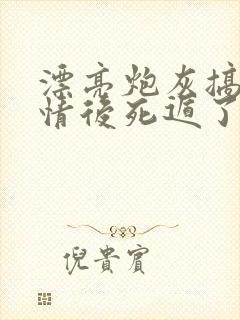 漂亮炮灰搞
情後死遁了
倪貴賓